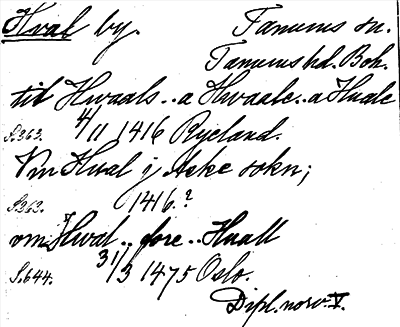 Hval by. Tanums sn.
Tanums hd. Boh.
til Hwaals.. a Hwaale.. a Huale
S.263. 4/11 1416 Ryeland.
Vm Hwal j Aske sokn;
S.262. 1416.?
vm Hval.. fore.. Huall
S.644. 31/3 1475 Oslo.
Dipl. norv. V.